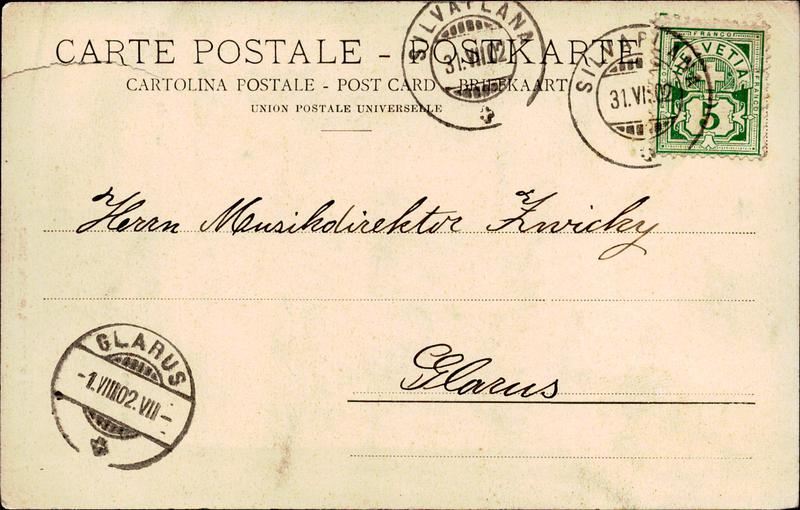 CARTE POSTALE - POSTKARTE
CARTOLINA POSTALE - POST CARD - BRIEFKAART
UNION POSTALE UNIVERSELLE
SILVAPLANA
31.VII.02
SILVAPL
31.VII.02
FRANCO
HELVETIA
5
Herrn Musikdirektor Zwicky
Glarus
GLARUS
-1.VIII.02.VII-